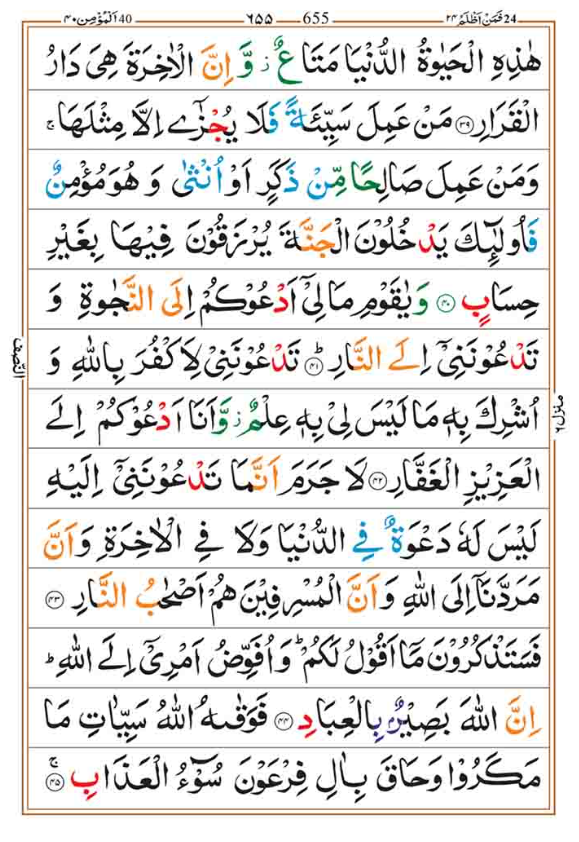 40 اَلْمُؤْمِن ۴۰ ۶۵۵ 655 24 فَمَنْ اَظْلَمُ ۲۴
هٰذِهِ الْحَيٰوةُ الدُّنْيَا مَتَاعٌ ز وَّ اِنَّ الْاٰخِرَةَ هِىَ دَارُ
الْقَرَارِ ﴿۳۹﴾ مَنْ عَمِلَ سَيِّئَةً فَلَا يُجْزٰٓى اِلَّا مِثْلَهَا ج
وَمَنْ عَمِلَ صَالِحًا مِّنْ ذَكَرٍ اَوْ اُنْثٰى وَ هُوَ مُؤْمِنٌ
فَاُولٰٓئِكَ يَدْخُلُوْنَ الْجَنَّةَ يُرْزَقُوْنَ فِيْهَا بِغَيْرِ
حِسَابٍ ﴿۴۰﴾ وَيٰقَوْمِ مَا لِىْٓ اَدْعُوْكُمْ اِلَى النَّجٰوةِ وَ
تَدْعُوْنَنِىْٓ اِلَى النَّارِ ؕ ﴿۴۱﴾ تَدْعُوْنَنِىْ لِاَكْفُرَ بِاللّٰهِ وَ
اُشْرِكَ بِهٖ مَا لَيْسَ لِىْ بِهٖ عِلْمٌ ز وَّاَنَا اَدْعُوْكُمْ اِلَى
الْعَزِيْزِ الْغَفَّارِ ﴿۴۲﴾ لَا جَرَمَ اَنَّمَا تَدْعُوْنَنِىْٓ اِلَيْهِ
لَيْسَ لَهٗ دَعْوَةٌ فِى الدُّنْيَا وَلَا فِى الْاٰخِرَةِ وَاَنَّ
مَرَدَّنَاۤ اِلَى اللّٰهِ وَاَنَّ الْمُسْرِفِيْنَ هُمْ اَصْحٰبُ النَّارِ ﴿۴۳﴾
فَسَتَذْكُرُوْنَ مَاۤ اَقُوْلُ لَكُمْ ؕ وَاُفَوِّضُ اَمْرِىْٓ اِلَى اللّٰهِ ؕ
اِنَّ اللّٰهَ بَصِيْرٌۢ بِالْعِبَادِ ﴿۴۴﴾ فَوَقٰٮهُ اللّٰهُ سَيِّاٰتِ مَا
مَكَرُوْا وَحَاقَ بِاٰلِ فِرْعَوْنَ سُوْٓءُ الْعَذَابِ ج ﴿۴۵﴾
النّصف
منزل ۶